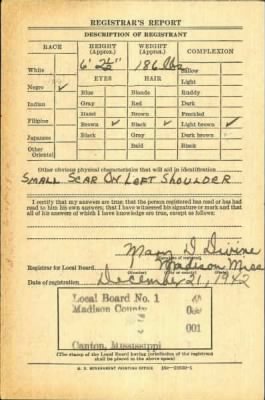 REGISTRAR'S REPORT
DESCRIPTION OF REGISTRANT
RACE HEIGHT (Approx.) WEIGHT (Approx.) COMPLEXION
6' 2½" 186 lbs
White Sallow
EYES HAIR Light
Negro ✓ Blue Blonde Ruddy
Indian Gray Red Dark
Hazel Brown Freckled
Filipino Brown ✓ Black ✓ Light brown ✓
Japanese Black Gray Dark brown
Other Oriental Bald Black
Other obvious physical characteristics that will aid in identification
SMALL SCAR ON LEFT SHOULDER
I certify that my answers are true; that the person registered has read or has had
read to him his own answers; that I have witnessed his signature or mark and that
all of his answers of which I have knowledge are true, except as follows:
Mary D Divine
(Signature of registrar)
Registrar for Local Board Madison Miss
(Number) (City or county) (State)
Date of registration December 21, 1942
Local Board No. 1
Madison County
001
Canton, Mississippi
(The stamp of the Local Board having jurisdiction of the registrant
shall be placed in the above space.)
U. S. GOVERNMENT PRINTING OFFICE